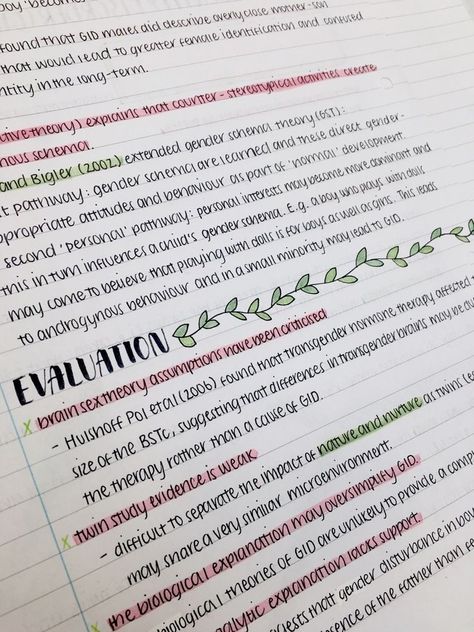 boy: becomes
found that GID males did describe overly close mother-son
that would lead to greater female identification and confused
ntity in the long-term.
ctive theory) explains that counter-stereotypical activities create
nous schema.
and Bigler (2002) extended gender schema theory (GST):
t pathway: gender schema are learned and these direct gender-
propriate attitudes and behaviour as part of 'normal' development.
second 'personal' pathway: personal interests may become more dominant and
this in turn influences a child's gender schema. E.g. a boy who plays with dolls
may come to believe that playing with dolls is for boys as well as girls. This leads
to androgynous behaviour and in a small minority may lead to GID.
EVALUATION
x brain sex theory assumptions have been criticised
- Hulshoff Pol et al (2006) found that transgender hormone therapy affected
size of the BSTc, suggesting that differences in transgender brains may be d
the therapy rather than a cause of GID.
x twin study evidence is weak
- difficult to separate the impact of nature and nurture as twins (e
may share a very similar microenvironment.
x the biological explanation may oversimplify GID.
biological theories of GID are unlikely to provide a comp
alytic explanation lacks support.
ests that gender disturbance in boy
sence of the father than fe